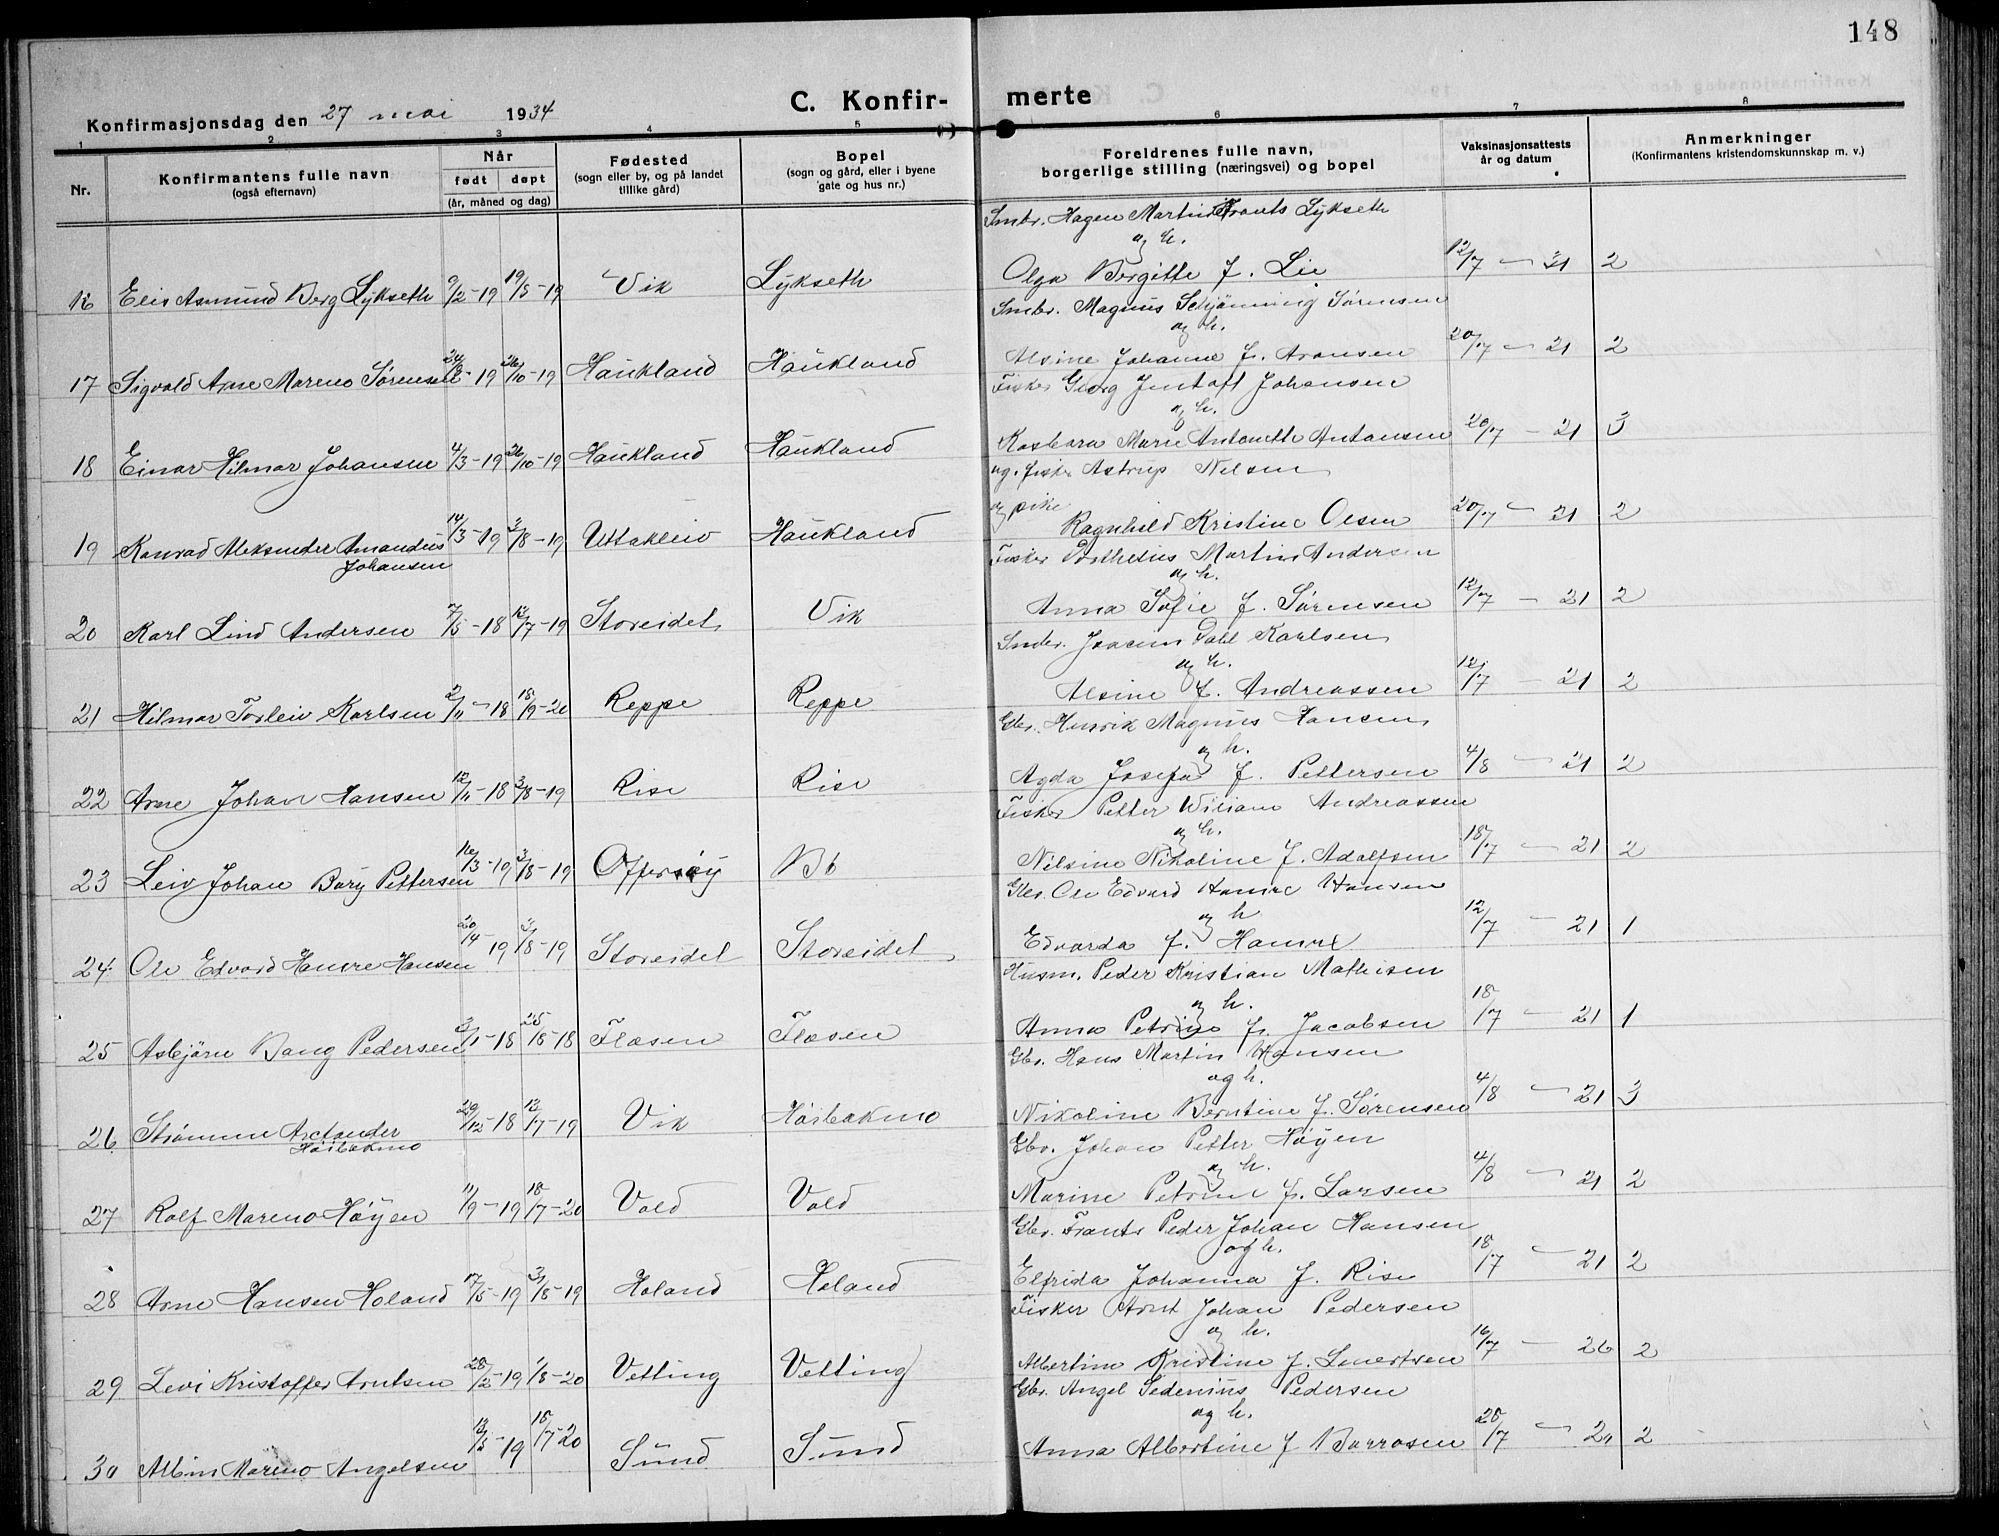 148
C. Konfir- merte
Konfirmasjonsdag den 27 mai 1934
1 2 3 4 5 6 7 8
Nr.
Konfirmantens fulle navn
(også efternavn)
Når
født døpt
(år, måned og dag)
Fødested
(sogn eller by, og på landet
tillike gård)
Bopel
(sogn og gård, eller i byene
gate og hus nr.)
Foreldrenes fulle navn,
borgerlige stilling (næringsvei) og bopel
Vaksinasjonsattests
år og datum
Anmerkninger
(Konfirmantens kristendomskunnskap m. v.)
Smbr. Hagen Martin Frants Lykseth
og h.
16 Elis Asmund Berg Lykseth 9/2-19 19/5-19 Vik Lykseth Olga Bergitte f. Lie 12/7 - 21 2
Smbr. Magnus Schjønning Sørensen
og h.
17 Sigvald Arne Mareno Sørensen 19 26/10-19 Haukland Haukland Alsine Johanne f. Aronsen 20/7 - 21 2
Fisker Georg Jentoft Johansen
og h.
18 Einar Hilmar Johansen 4/3-19 26/10-19 Haukland Haukland Kasbara Marie Antonette Antonsen 20/7 - 21 3
ug. fisker Astrup Nilsen
og pike
19 Konrad Aleksander Amandus 14/3-19 3/8-19 Uttakleiv Haukland Ragnhild Kristine Olsen 20/7 - 21 2
Johansen
Fisker Martin Andersen
og h.
20 Karl Lind Andersen 7/5-18 13/7-19 Storeidet Vik Anna Sofie f. Sørensen 12/7 - 21 2
Smbr. Joacim Dahl Karlsen
og h.
21 Hilmar Torleiv Karlsen 2/11-18 18/9-20 Reppe Reppe Alsine f. Andreassen 12/7 - 21 2
Gbr. Henrik Magnus Hansen
og h.
22 Arne Johan Hansen 12/11-18 3/8-19 Rise Rise Agda Josefa f. Pettersen 4/8 - 21 2
Fisker Petter Wiliam Andreassen
og h.
23 Leiv Johan Borg Pettersen 16/3-19 3/8-19 Offersøy Bö Nilsine Nikoline f. Adolfsen 18/7 - 21 2
Gbr. Ole Edvard Hamre Hansen
og h
24 Ole Edvard Hamre Hansen 20/4-19 3/8-19 Storeidet Storeidet Edvarda f. Hamre 12/7 - 21 1
Husm. Peder Kristian Mathisen
og h.
25 Asbjørn Bang Pedersen 3/1-18 25/8-18 Flæsen Flæsen Anna Petrine f. Jacobsen 18/7 - 21 1
Gbr. Hans Martin Hansen
og h.
26 Strømme Arctander 29/12-18 13/7-19 Vik Høibakmo Nikoline Berntine f. Sørensen 4/8 - 21 3
Høibakmo
Gbr. Johan Petter Høyen
og h.
27 Rolf Mareno Høyen 11/9-19 18/7-20 Vold Vold Marine Petrine f. Larsen 4/8 - 21 2
Gbr. Frants Peder Johan Hansen
og h.
28 Arne Hansen Holand 17/5-19 3/8-19 Holand Holand Elfrida Johanna f. Rise 18/7 - 21 2
Fisker Arnt Johan Pedersen
og h.
29 Levi Kristoffer Arntsen 28/2-19 1/8-20 Vetting Vetting Albertine Kristine f. Lenertsen 16/7 - 26 2
Gbr. Angel Sedenius Pedersen
og h.
30 Albin Mareno Angelsen 13/5-19 18/7-20 Sund Sund Anna Albertine f Borrosen 28/7 - 21 2